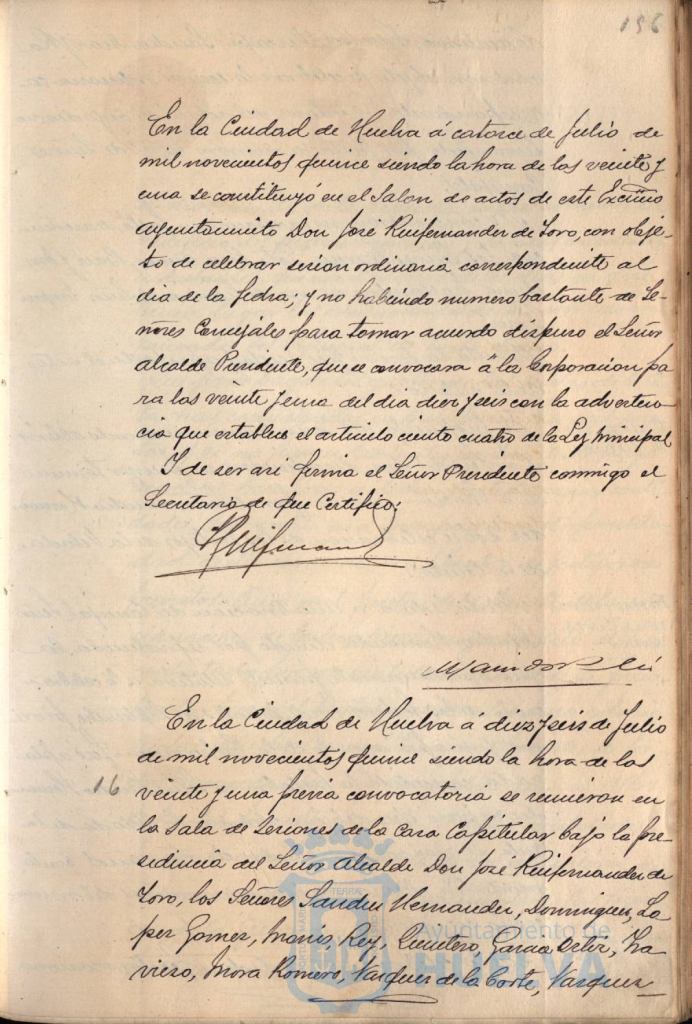 196
En la Ciudad de Huelva á catorce de Julio de
mil novecientos quince siendo la hora de las veinte y
una se constituyó en el Salon de actos de este Excmo
Ayuntamiento Don José Ruifernandez de Toro, con obje-
to de celebrar sesion ordinaria correspondiente al
dia de la fecha; y no habiendo numero bastante de Se-
ñores Concejales para tomar acuerdo dispuso el Señor
Alcalde Presidente, que se convocara á la Corporacion pa
ra las veinte y una del dia diez y seis con la adverten-
cia que establece el articulo ciento cuatro de la Ley Municipal
Y de ser asi firma el Señor Presidente conmigo el
Secretario de que Certifico:
En la Ciudad de Huelva á diez y seis de Julio
de mil novecientos quince siendo la hora de las
16 veinte y una previa convocatoria se reunieron en
la Sala de Sesiones de la Casa Capitular bajo la pre-
sidencia del Señor Alcalde Don José Ruifernandez de
Toro, los Señores Sanchez Hernandez, Dominguez, Lo
pez Gomez, Rey, Quintero, Garcia Tra
vieso, Mora Romero, Vazquez de la Corte, Vazquez
Ayuntamiento de
HUELVA